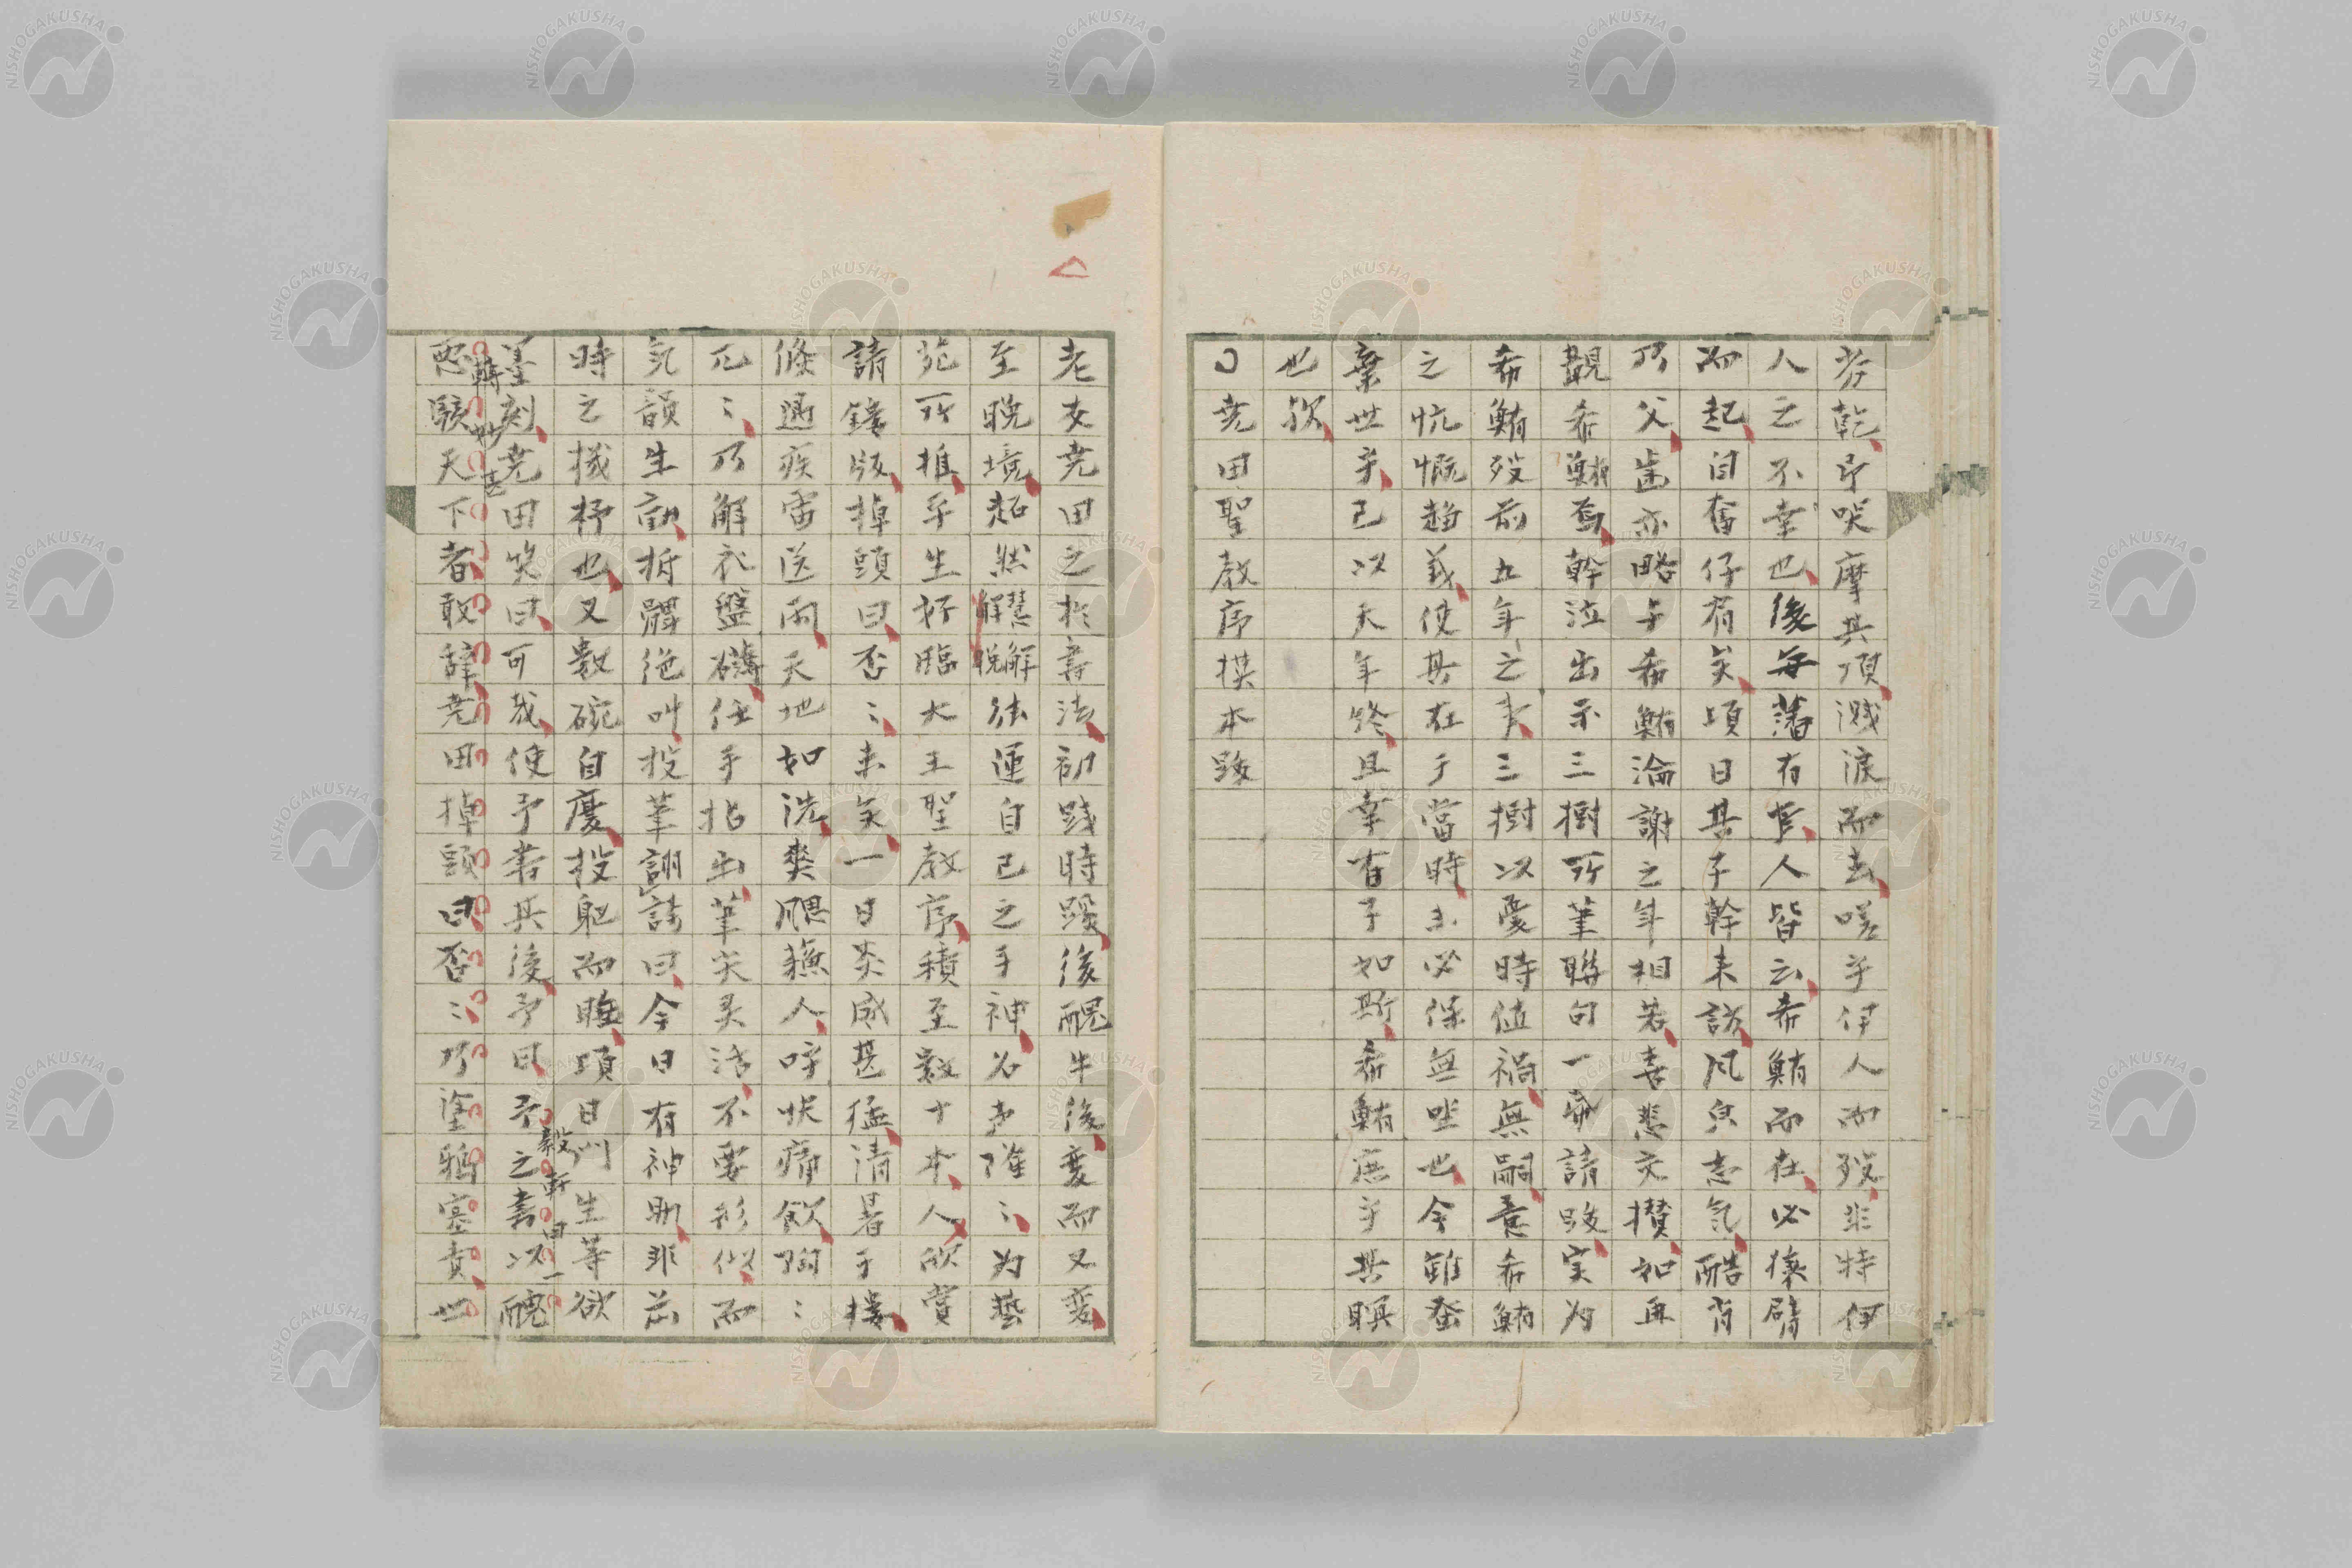 芬乾予咲摩其頂濺涙而去嗟乎伊人而歿非特伊
人之不幸也後毎藩有事人皆云希鮪而在必攘臂
而起自奮仔有矣頃日其子幹来訪風貌志気酷肖
乃父歯亦略与希鮪淪謝之年相若喜悲交攅如再
覩希鮪焉幹泣出示三樹所筆聯句一帋請跋実為
希鮪歿前五年之事三樹以憂時値禍無嗣意希鮪
之忼慨趋義使其在于當時亦必保無坐也今雖蚤
棄世乎已以天年終且幸有子如斯希鮪庶乎其瞑
也歟
尭田聖教序摸本跋
老友尭田之於書法初践時蹊後醜牛後変而又変
至晩境超然慧解解脱法運自己之手神公声隆々為藝
苑所推乎生好臨大王聖教序積至数十本人欣賞
請鏤版掉頭曰否々未矣一日炎威甚猛清暑于楼
倐遇疾雷送雨天地如洗爽颸蘓人呼快痛飲陶々
兀々乃解衣盤礴任手拈出筆尖霊活不要形似而
気韻生動拆髀絶叫投筆詡詩曰今日有神助非前
時之機杼也又数碗自慶投躯而睡頃日門生等欲
墨刻尭田咲曰可哉使予書其後予曰予之書以醜
毅軒曰一
悪駭天下者敢辞尭田掉頭曰否々乃塗鴉塞責世
轉妙甚
NISHOGAKUSHA